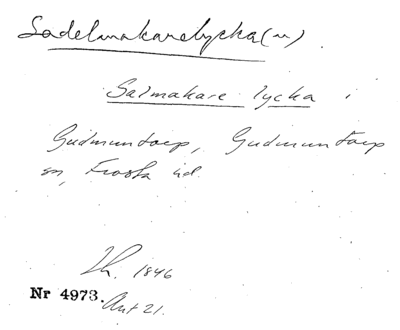 Sadelmakarelycka(n)
Salmakare lycka i
Gudmuntorp, Gudmuntorp
sn, Frosta hd.
Lh. 1846
Nr 4973. Ant 21.